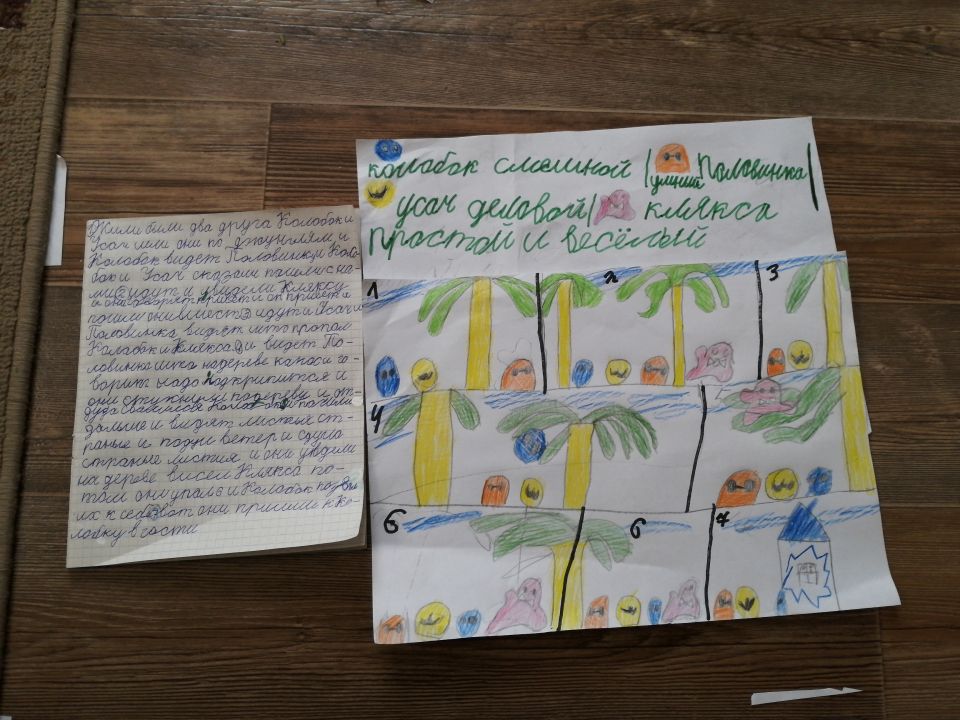 Жили были два друга Колобок и
Усач шли они по джунглям и
Колобок видет Половинку и Коло-
бок и Усач сказали пошлис на-
ми идут и увидели Кляксу
и они говорят привет и он привет и
пошли они вместе идут и Усач и
Половинка видят што пропал
Колабок и Клякса и видет По-
ловинка шта надереве каноси го-
варит надо падкрипится и
они стукнули подереву и от-
туда свалился Колабок пошли
дальше и видят листья ст-
раные и подул ветер и сдула
страные листия и они уведели
на дереве висел Клякса по-
том он упал и Колабок позвал
их к себе вот они пришли к Ко-
лобку в гости
колабок смешной / умний Половинка /
усач деловой / клякса
простой и весёлый
1 2 3
4
5 6 7